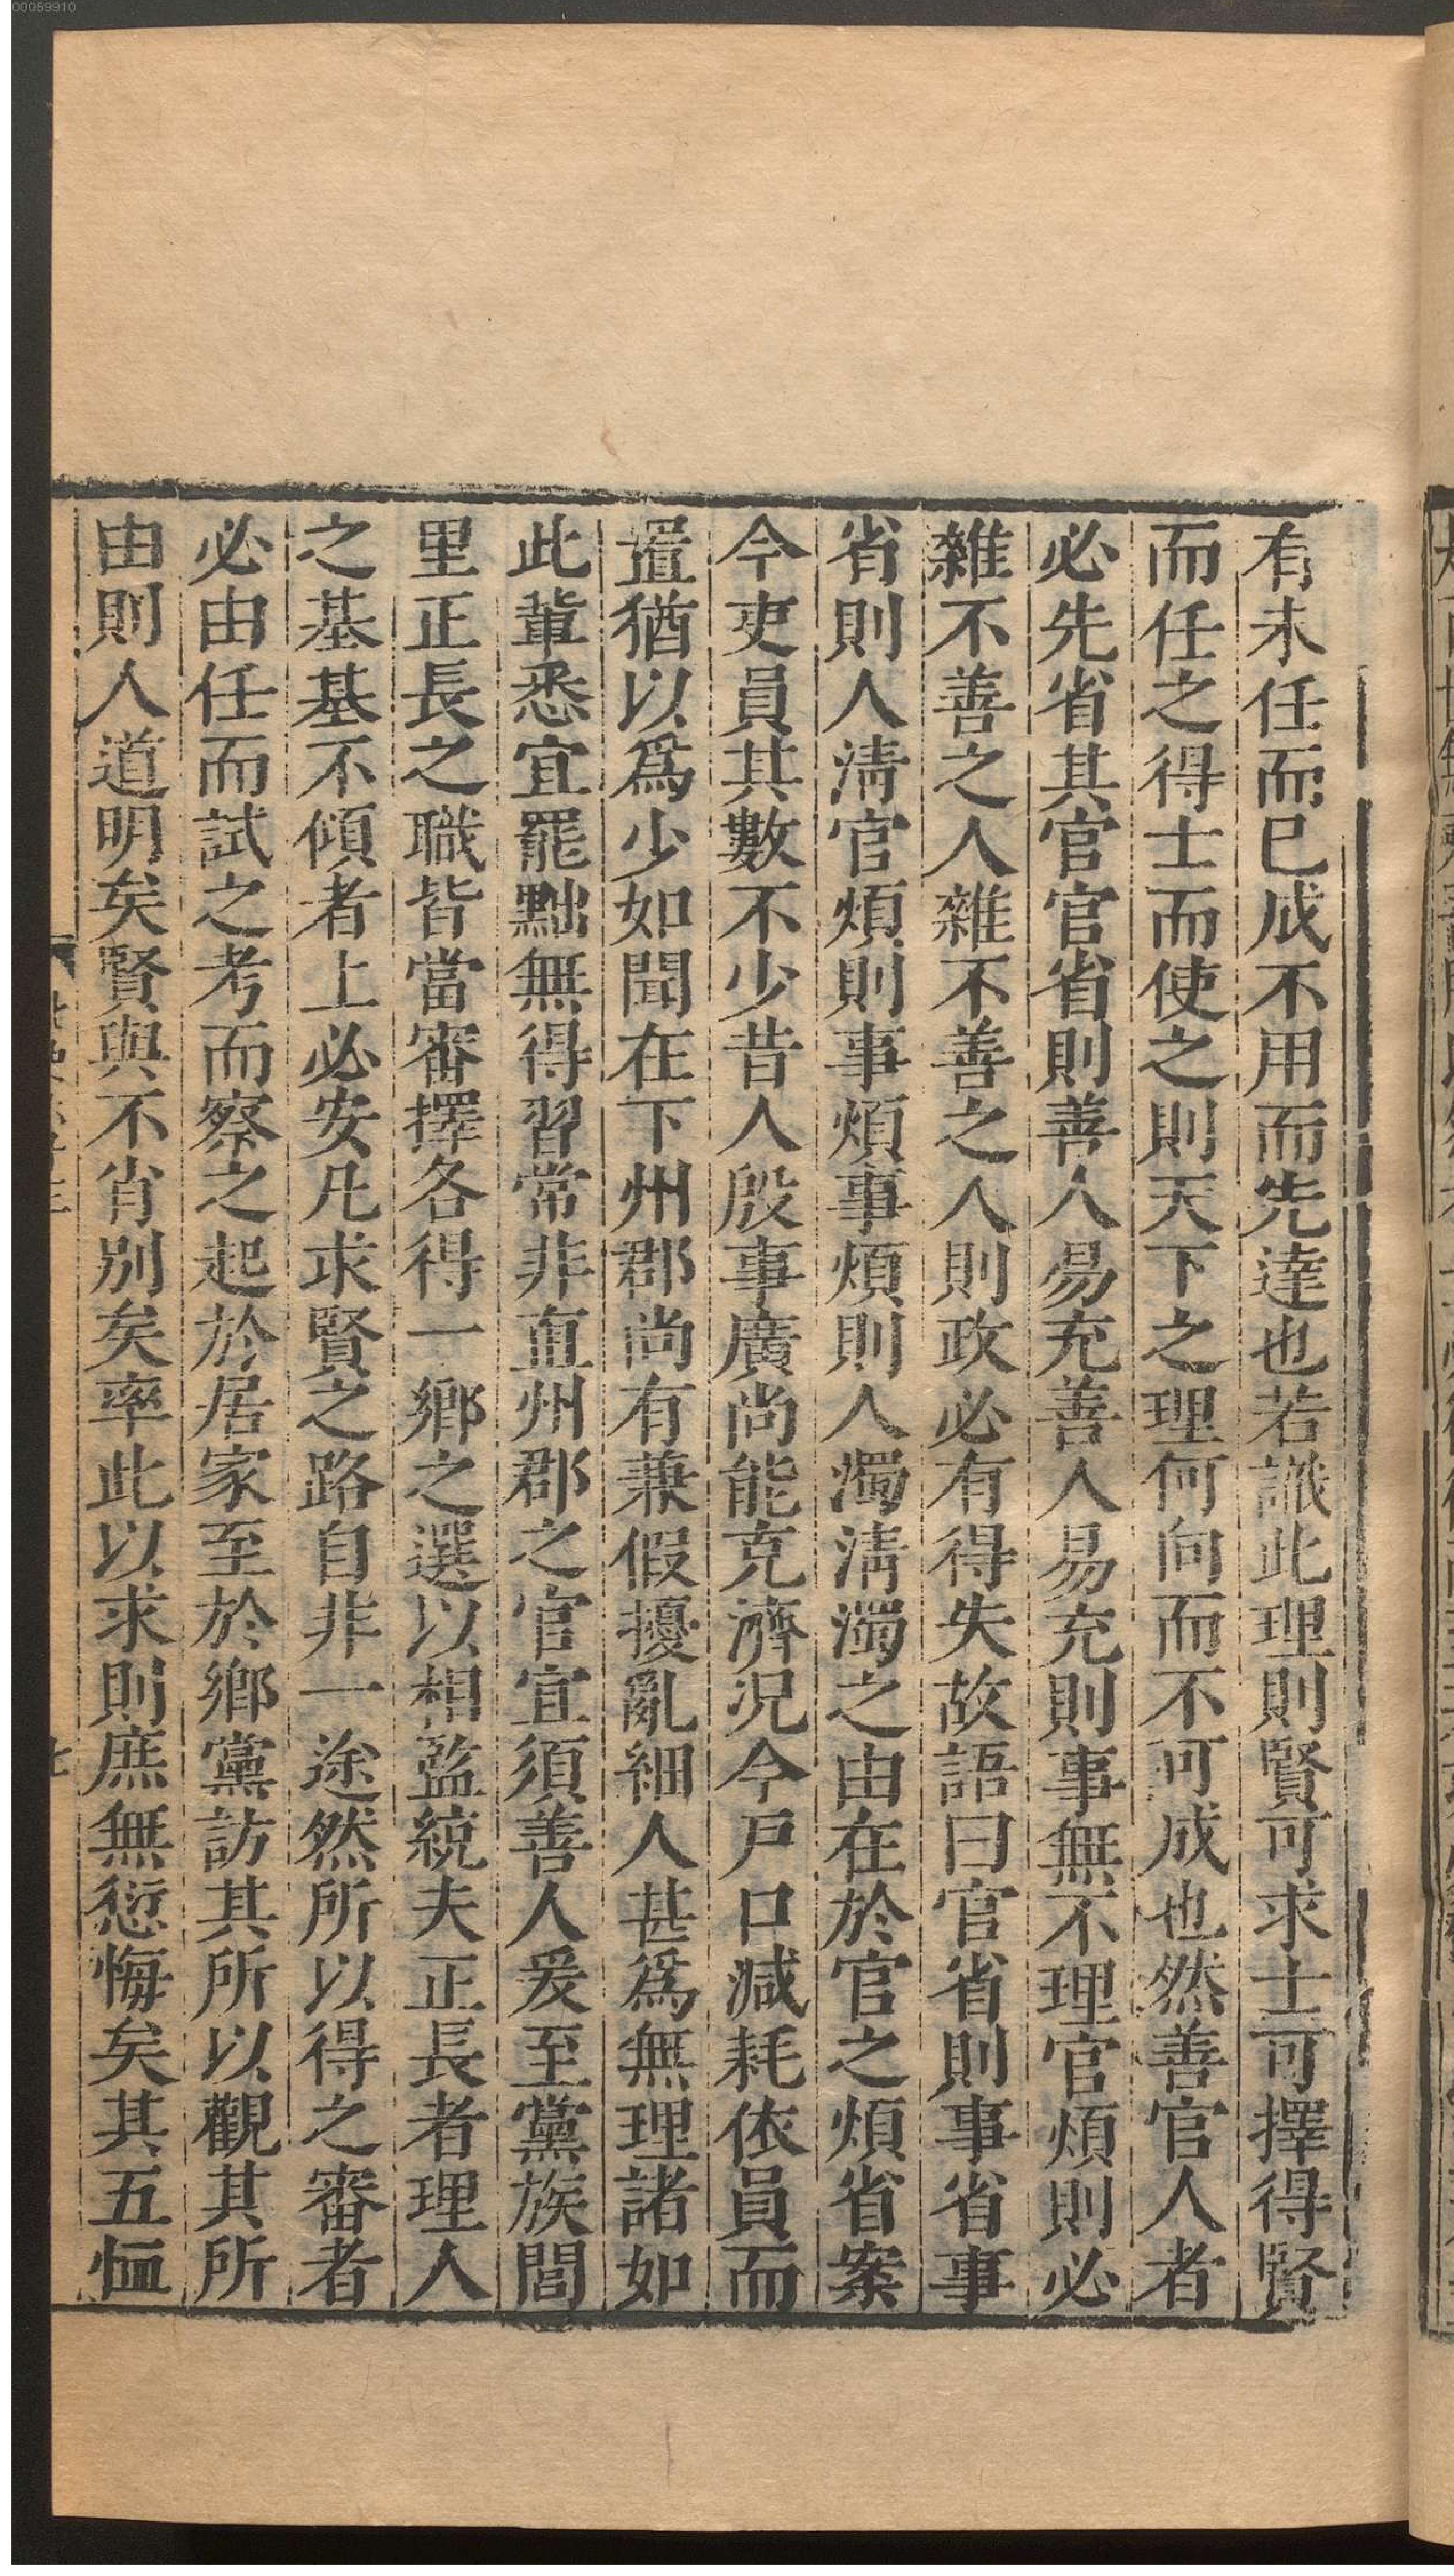 00059910
有未任而已成不用而先達也若識此理則賢可求士可擇得賢
而任之得士而使之則天下之理何向而不可成也然善官人者
必先省其官官省則善人易充善人易充則事無不理官煩則必
雜不善之人雜不善之人則政必有得失故語曰官省則事省事
省則人淸官煩則事煩事煩則人濁淸濁之由在於官之煩省案
今吏員其數不少昔人殷事廣尚能克濟况今戸口減耗依員而
置猶以爲少如聞在下州郡尚有兼假擾亂細人甚爲無理諸如
此輩悉宜罷黜無得習常非直州郡之官宜須善人爰至黨族閭
里正長之職皆當審擇各得一鄉之選以相監統夫正長者理人
之基基不傾者上必安凡求賢之路自非一途然所以得之審者
必由任而試之考而察之起於居家至於鄉黨訪其所以觀其所
由則人道明矣賢與不肖別矣率此以求則庶無愆悔矣其五恤